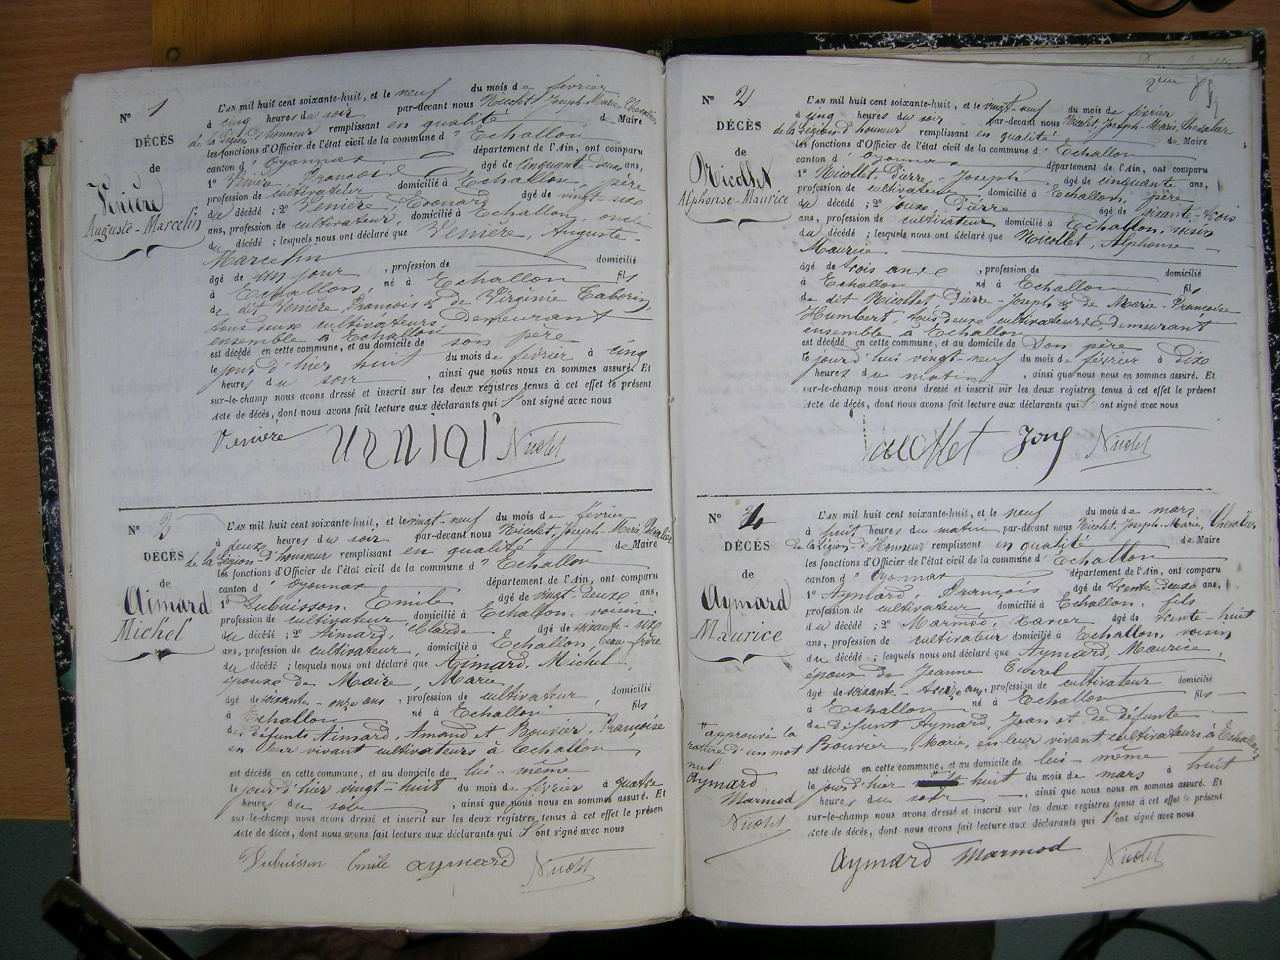 N° 1
DÉCÈS
de
Venière
Auguste-Marcelin
L'AN mil huit cent soixante-huit, et le neuf du mois de février
à cinq heures du soir par-devant nous Nicolet, Joseph-Marie, Chevalier
de la Légion d'honneur remplissant en qualité de Maire
les fonctions d'Officier de l'état civil de la commune d'Echallon
canton d'Oyonnax département de l'Ain, ont comparu
1° Venière François âgé de cinquante deux ans,
profession de cultivateur domicilié à Echallon, père
du décédé ; 2° Venière Léonard âgé de vingt six
ans, profession de cultivateur, domicilié à Echallon, oncle
du décédé ; lesquels nous ont déclaré que Venière, Auguste-
Marcelin
âgé de un jour , profession de domicilié
à Echallon, né à Echallon fils
de dit Venière François & de Virginie Tabouin
tous deux cultivateurs demeurant
ensemble à Echallon
est décédé en cette commune, et au domicile de son père
le jour d'hier huit du mois de février à cinq
heures du soir ainsi que nous nous en sommes assuré. Et
sur-le-champ nous avons dressé et inscrit sur les deux registres tenus à cet effet le présent
acte de décès, dont nous avons fait lecture aux déclarants qui l'ont signé avec nous
Venière Nicolet
N° 3
DÉCÈS
de
Aimard
Michel
L'AN mil huit cent soixante-huit, et le vingt-neuf du mois de février
à deux heures du soir par-devant nous Nicolet, Joseph-Marie Chevalier
de la Légion-d'honneur remplissant en qualité de Maire
les fonctions d'Officier de l'état civil de la commune d'Echallon
canton d'Oyonnax département de l'Ain, ont comparu
1° Dubuisson, Emile âgé de vingt-deux ans,
profession de cultivateur, domicilié à Echallon, voisin
du décédé ; 2° Aimard, Claude âgé de soixante-six
ans, profession de cultivateur, domicilié à Echallon, beau-frère
du décédé ; lesquels nous ont déclaré que Aimard, Michel,
époux de Moire, Marie
âgé de soixante-onze ans, profession de cultivateur domicilié
à Echallon né à Echallon fils
de défunts Aimard, Amand et Bouvier, Françoise
en leur vivant cultivateurs à Echallon,
est décédé en cette commune, et au domicile de lui-même
le jour d'hier vingt-huit du mois de février à quatre
heures du soir , ainsi que nous nous en sommes assuré. Et
sur-le-champ nous avons dressé et inscrit sur les deux registres tenus à cet effet le présent
acte de décès, dont nous avons fait lecture aux déclarants qui l'ont signé avec nous
Dubuisson Emile aymard Nicolet
N° 2
DÉCÈS
de
Nicollet
Alphonse-Maurice
L'AN mil huit cent soixante-huit, et le vingt-neuf du mois de février
à cinq heures du soir par-devant nous Nicolet, Joseph-Marie, Chevalier
de la Légion d'honneur remplissant en qualité de Maire
les fonctions d'Officier de l'état civil de la commune d'Echallon
canton d'Oyonnax département de l'Ain, ont comparu
1° Nicollet Pierre-Joseph âgé de cinquante ans,
profession de cultivateur domicilié à Echallon, père
du décédé ; 2° Joux Pierre âgé de soixante-trois
ans, profession de cultivateur domicilié à Echallon, voisin
du décédé ; lesquels nous ont déclaré que Nicollet, Alphonse
Maurice
âgé de trois ans , profession de domicilié
à Echallon né à Echallon fils
de dit Nicollet Pierre-Joseph & de Marie-Françoise
Humbert, tous deux cultivateurs demeurant
ensemble à Echallon
est décédé en cette commune, et au domicile de son père
le jour d'hui vingt-neuf du mois de février à dix
heures du matin , ainsi que nous nous en sommes assuré. Et
sur-le-champ nous avons dressé et inscrit sur les deux registres tenus à cet effet le présent
acte de décès, dont nous avons fait lecture aux déclarants qui l'ont signé avec nous
Nicolet
N° 4
DÉCÈS
de
Aymard
Maurice
L'AN mil huit cent soixante-huit, et le neuf du mois de mars
à huit heures du matin par-devant nous Nicolet, Joseph-Marie, Chevalier
de la Légion-d'Honneur remplissant en qualité de Maire
les fonctions d'Officier de l'état civil de la commune d'Echallon
canton d'Oyonnax département de l'Ain, ont comparu
1° Aymard, François âgé de trente-deux ans,
profession de cultivateur domicilié à Echallon, fils
du décédé ; 2° Marmod, Xavier âgé de trente-huit
ans, profession de cultivateur domicilié à Echallon, voisin
du décédé ; lesquels nous ont déclaré que Aymard, Maurice,
époux de Jeanne
âgé de soixante-treize ans, profession de cultivateur domicilié
à Echallon né à Echallon fils
de défunt Aymard Jean et de défunte
Bouvier, Marie, en leur vivant cultivateurs à Echallon
est décédé en cette commune, et au domicile de lui-même
le jour d'hier huit du mois de mars à huit
heures du soir , ainsi que nous nous en sommes assuré. Et
sur-le-champ nous avons dressé et inscrit sur les deux registres tenus à cet effet le présent
acte de décès, dont nous avons fait lecture aux déclarants qui l'ont signé avec nous
approuvé la
rature d'un mot
nul
Aymard
Marmod
Nicolet
aymard Marmod Nicolet